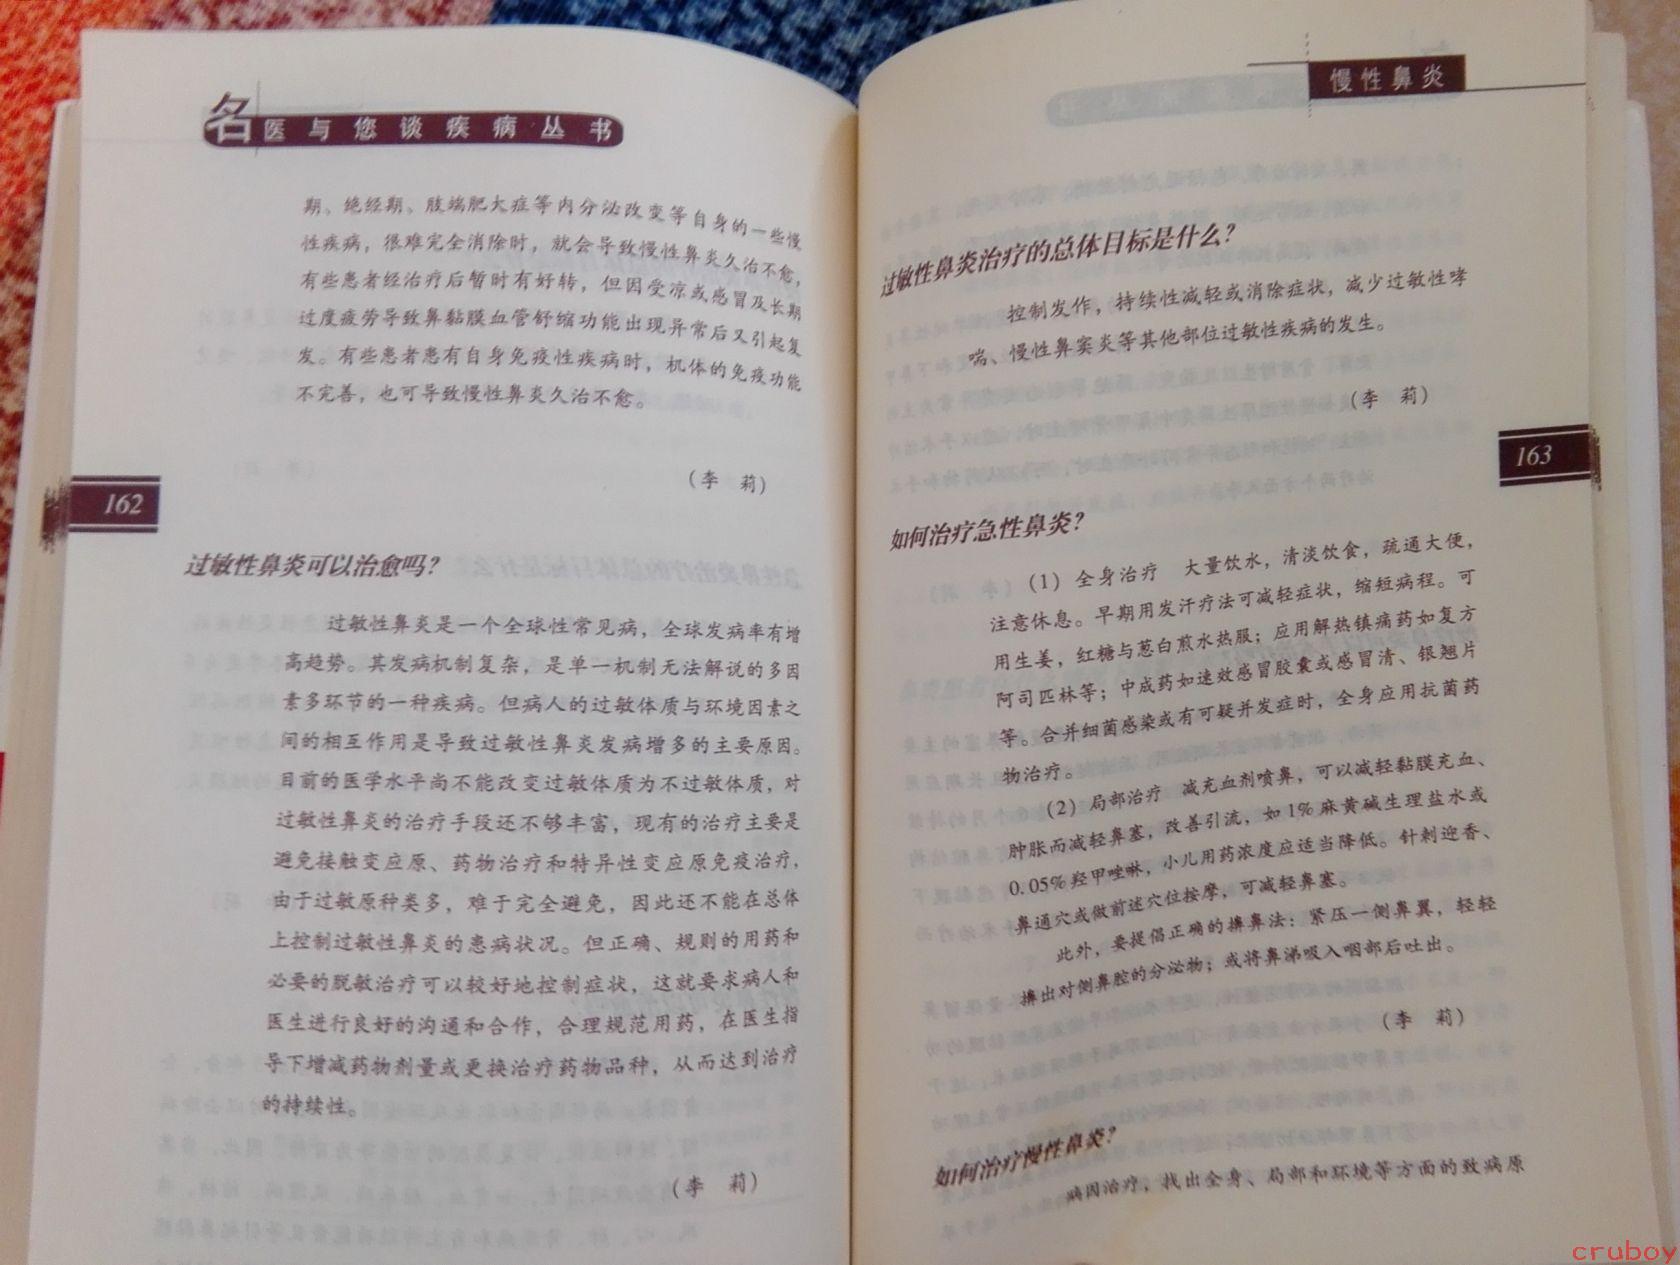 名医与您谈疾病丛书
期、绝经期、肢端肥大症等内分泌改变等自身的一些慢
性疾病，很难完全消除时，就会导致慢性鼻炎久治不愈，
有些患者经治疗后暂时有好转，但因受凉或感冒及长期
过度疲劳导致鼻黏膜血管舒缩功能出现异常后又引起复
发。有些患者患有自身免疫性疾病时，机体的免疫功能
不完善，也可导致慢性鼻炎久治不愈。
（李　莉）
162
过敏性鼻炎可以治愈吗？
过敏性鼻炎是一个全球性常见病，全球发病率有增
高趋势。其发病机制复杂，是单一机制无法解说的多因
素多环节的一种疾病。但病人的过敏体质与环境因素之
间的相互作用是导致过敏性鼻炎发病增多的主要原因。
目前的医学水平尚不能改变过敏体质为不过敏体质，对
过敏性鼻炎的治疗手段还不够丰富，现有的治疗主要是
避免接触变应原、药物治疗和特异性变应原免疫治疗，
由于过敏原种类多，难于完全避免，因此还不能在总体
上控制过敏性鼻炎的患病状况。但正确、规则的用药和
必要的脱敏治疗可以较好地控制症状，这就要求病人和
医生进行良好的沟通和合作，合理规范用药，在医生指
导下增减药物剂量或更换治疗药物品种，从而达到治疗
的持续性。
（李　莉）
慢性鼻炎
过敏性鼻炎治疗的总体目标是什么？
控制发作，持续性减轻或消除症状，减少过敏性哮
喘、慢性鼻窦炎等其他部位过敏性疾病的发生。
（李　莉）
163
如何治疗急性鼻炎？
（1）全身治疗　大量饮水，清淡饮食，疏通大便，
注意休息。早期用发汗疗法可减轻症状，缩短病程。可
用生姜，红糖与葱白煎水热服；应用解热镇痛药如复方
阿司匹林等；中成药如速效感冒胶囊或感冒清、银翘片
等。合并细菌感染或有可疑并发症时，全身应用抗菌药
物治疗。
（2）局部治疗　减充血剂喷鼻，可以减轻黏膜充血、
肿胀而减轻鼻塞，改善引流，如1%麻黄碱生理盐水或
0.05%羟甲唑啉，小儿用药浓度应适当降低。针刺迎香、
鼻通穴或做前述穴位按摩，可减轻鼻塞。
此外，要提倡正确的擤鼻法：紧压一侧鼻翼，轻轻
擤出对侧鼻腔的分泌物；或将鼻涕吸入咽部后吐出。
（李　莉）
如何治疗慢性鼻炎？
病因治疗，找出全身、局部和环境等方面的致病原
cruboy